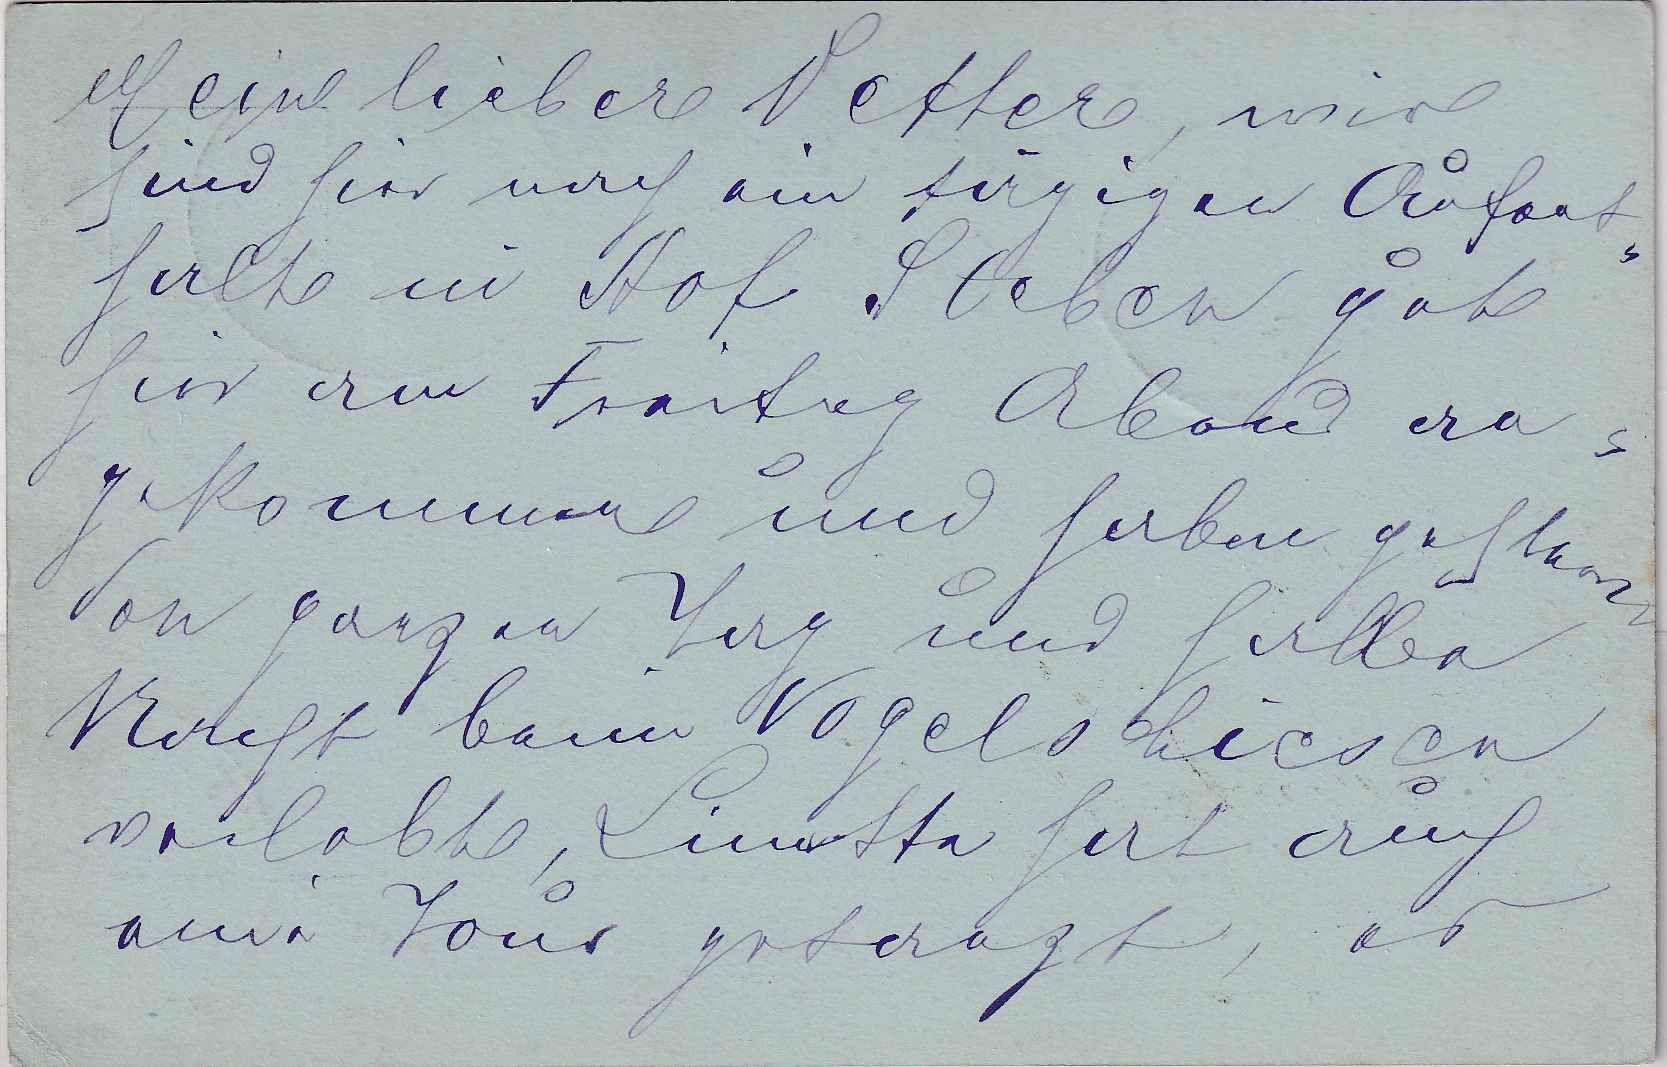 Mein lieber Vetter, wir
sind hier nach ein tägigen Aufent-
halte in Hof Steben gut
hier am Freitag Abend an-
gekommen und haben gestern
den ganzen Tag und halbe
Nacht beim Vogelschiesen
verlebt, Linetta hat auch
eine Tour getanzt, es